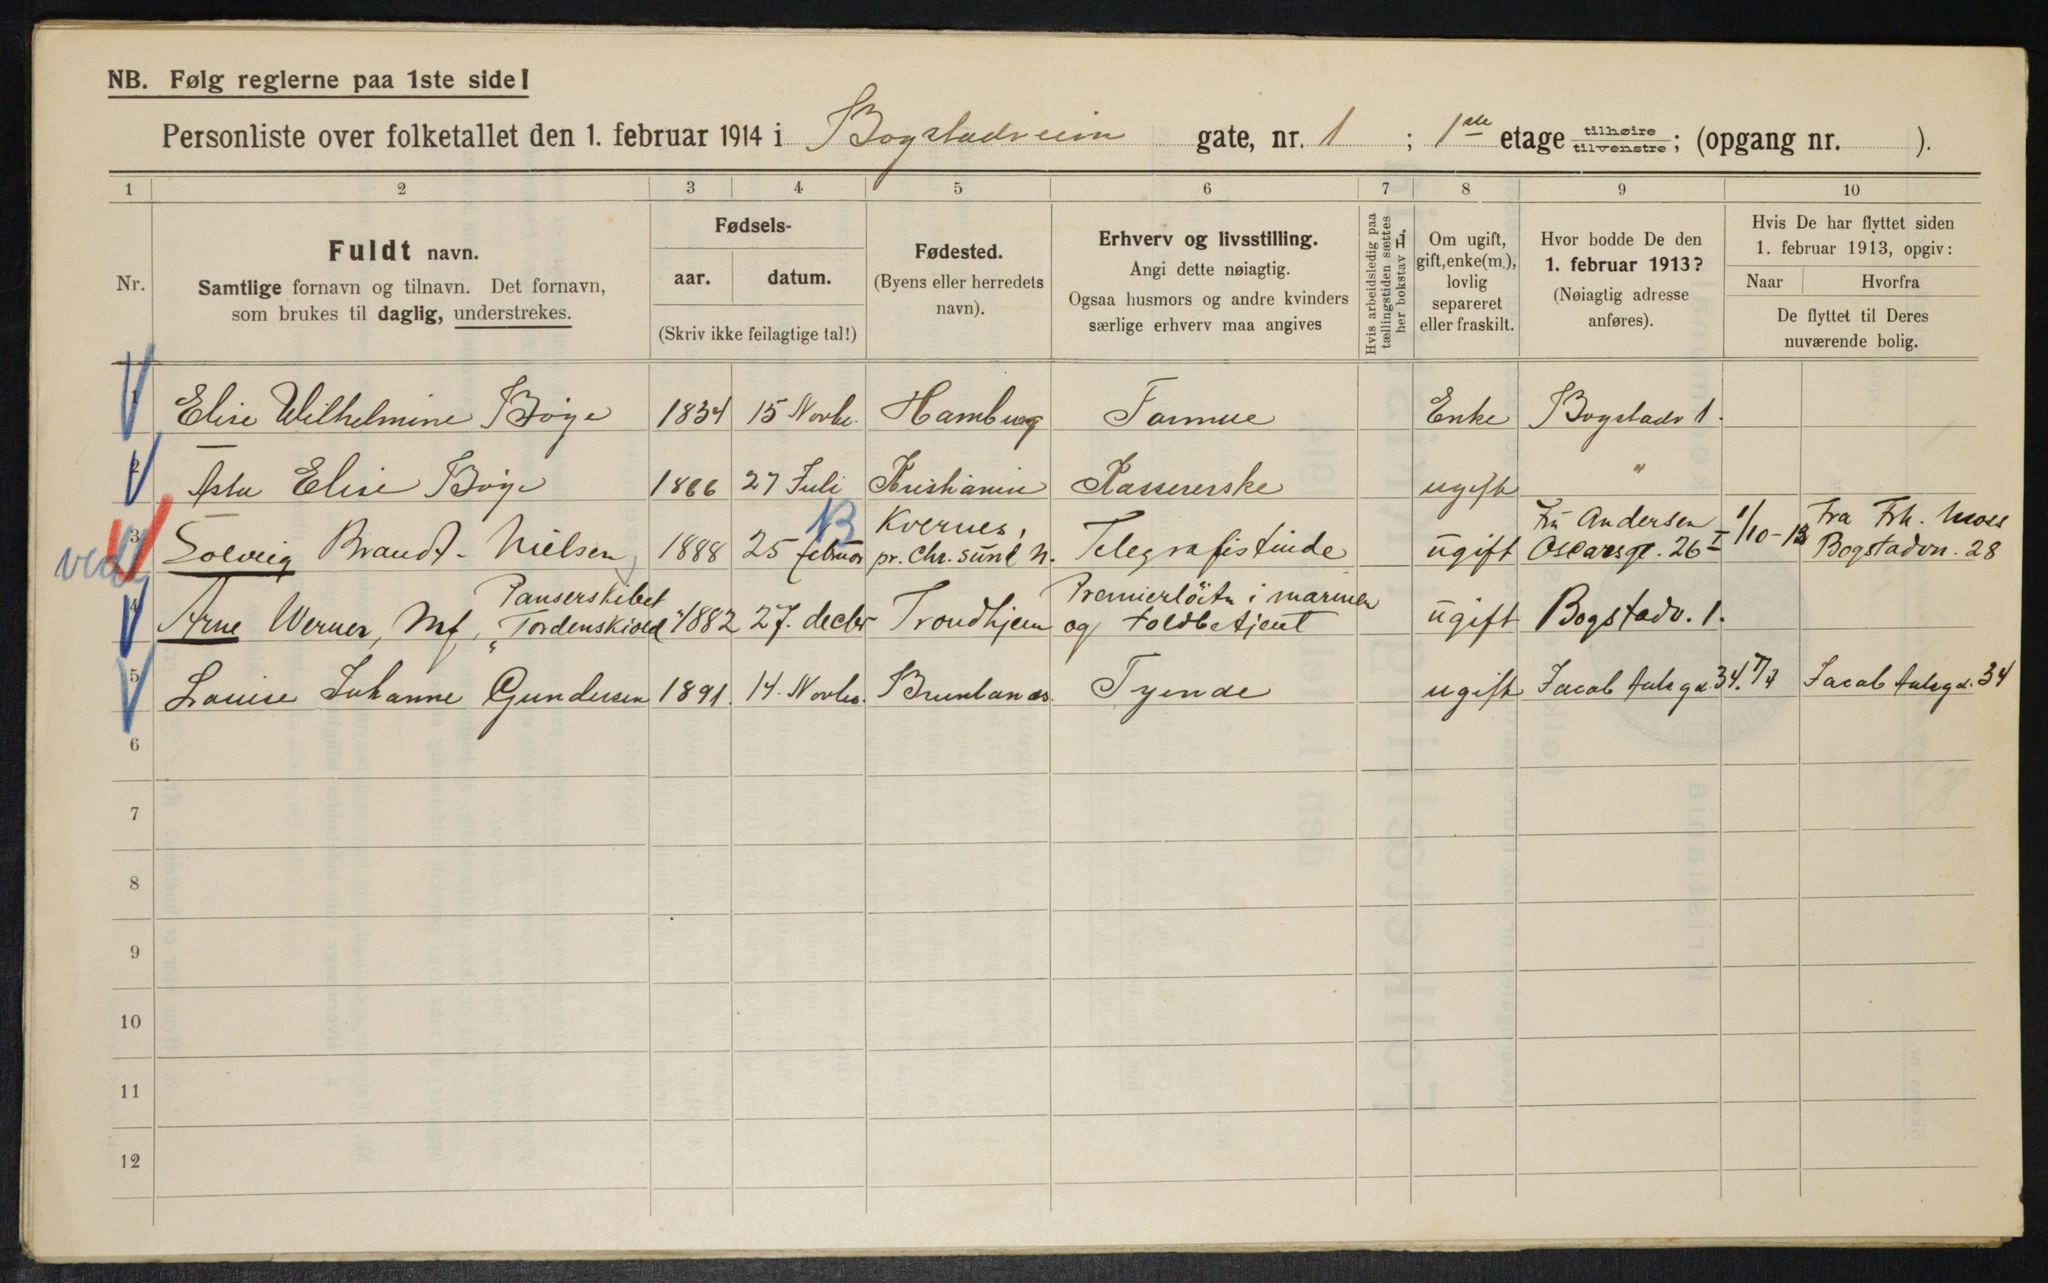 NB. Følg reglerne paa 1ste side!
Personliste over folketallet den 1. februar 1914 i Bogstadveien gate, nr. 1 ; 1ste etage tilhøire tilvenstre; (opgang nr. ).
1 2 3 4 5 6 7 8 9 10
Nr.
Fuldt navn.
Samtlige fornavn og tilnavn. Det fornavn,
som brukes til daglig, understrekes.
Fødsels-
aar. datum.
(Skriv ikke feilagtige tal!)
Fødested.
(Byens eller herredets
navn).
Erhverv og livsstilling.
Angi dette nøiagtig.
Ogsaa husmors og andre kvinders
særlige erhverv maa angives
Hvis arbeidsledig paa
tællingstiden sættes
her bokstav H.
Om ugift,
gift, enke(m.),
lovlig
separeret
eller fraskilt.
Hvor bodde De den
1. februar 1913?
(Nøiagtig adresse
anføres).
Hvis De har flyttet siden
1. februar 1913, opgiv:
Naar Hvorfra
De flyttet til Deres
nuværende bolig.
1 Elise Wilhelmine Bøye 1834 15 Novbr. Hamburg Formue Enke Bogstadv 1.
2 Asta Elise Bøye 1866 27 Juli Kristiania Kassererske ugift "
B
3 Solveig Brandt-Nielsen 1888 25 februar Kvernes, pr. Chr. sund N. Telegrafistinde ugift Frü Andersen Oscarsgt. 26 I 1/10-13 Fra Frk. Moss Bogstadvn. 28
4 Arne Werner, Mf, Panserskibet "Tordenskiold" 1882 27. decbr Trondhjem Premierløitn i marinen og toldbetjent ugift Bogstadv. 1.
5 Louise Johanne Gundersen 1891. 14. Novbr. Brunlanæs. Tjende ugift Jacob Aalsgd. 34. Jacob Aalsgd. 34
6
7
8
9
10
11
12